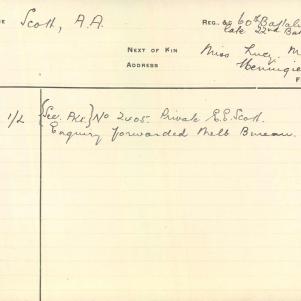 Scott, A.A.
REG. 60th Battalion
late 22nd Bat
NEXT OF KIN Miss Lucy M
ADDRESS
1/2 {See Pte} No 2405. Private E.E. Scott.
Enquiry forwarded Melb Bureau.